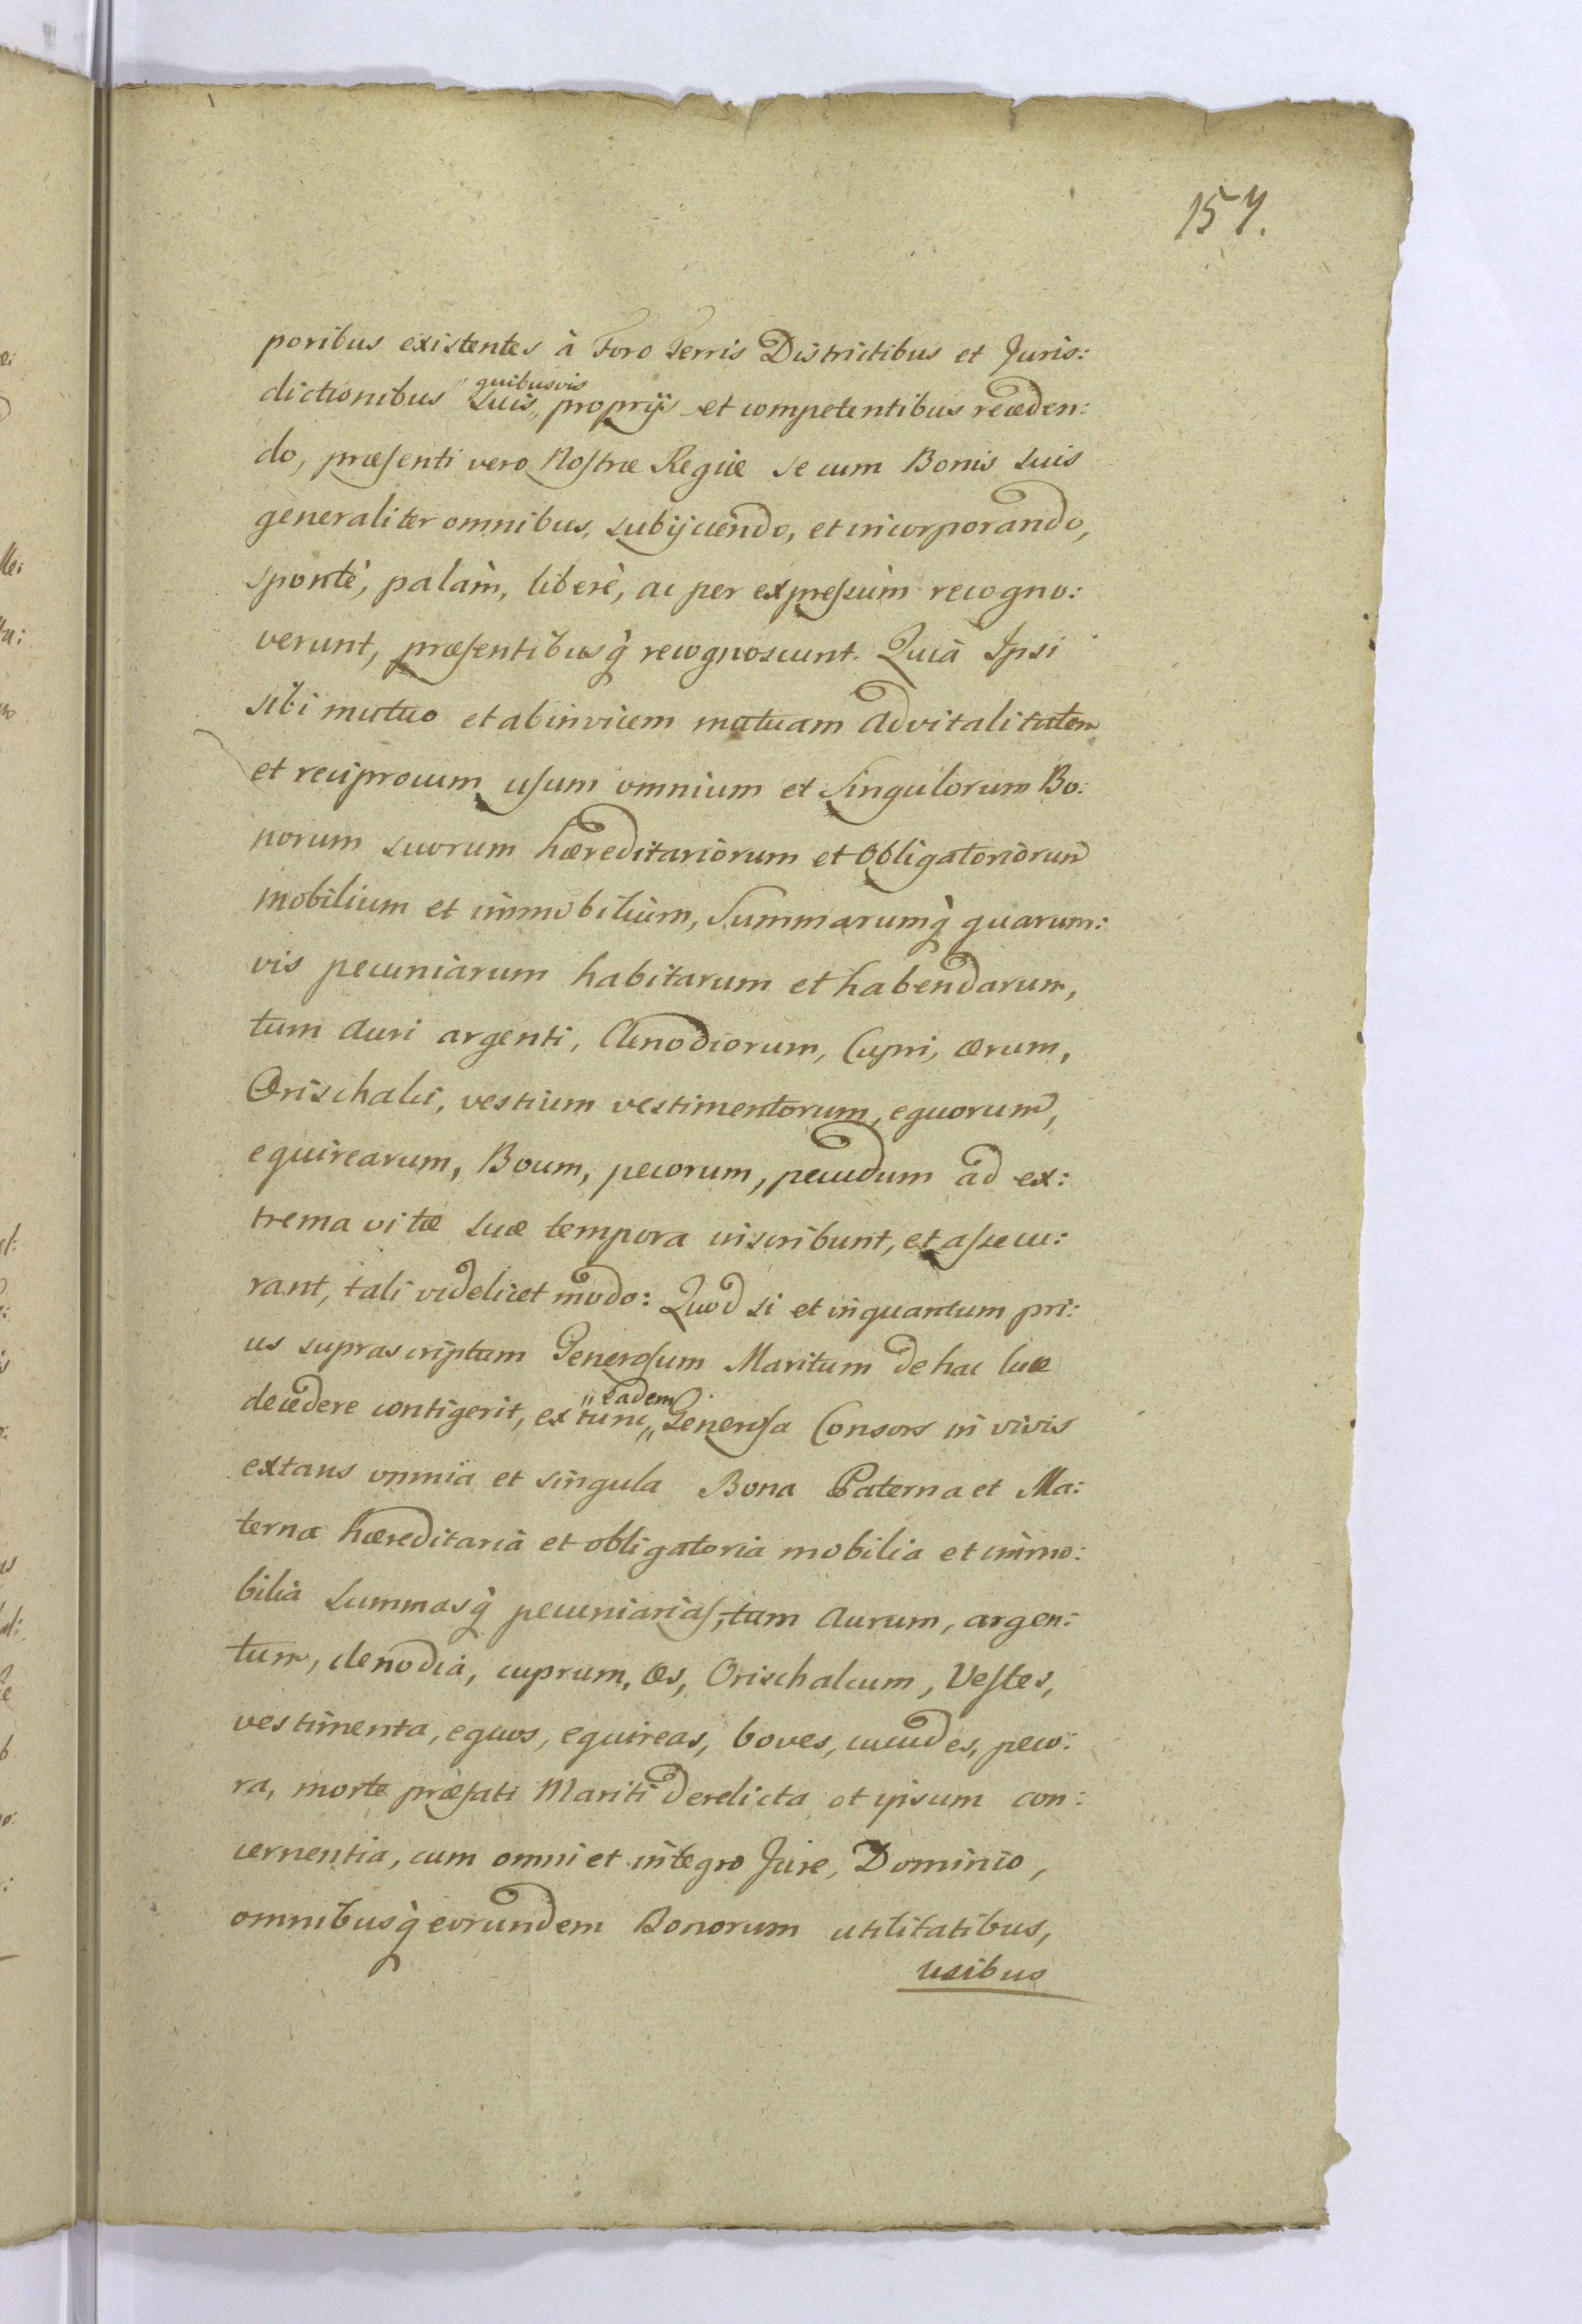 157.
poribus existentes à Foro Terris Districtibus et Juris:
dictionibus "suis,, quibusvis proprijs et competentibus receden:
do, præsenti vero Nostræ Regiæ se cum Bonis suis
generaliter omnibus, subijciendo, et incorporando,
spontè, palàm, liberè, ac per expressùm recogno:
verunt, præsentibusq̀ recognoscunt. Quià Ipsi
sibi mutuo et abinvicem mutuam advitalitatem
et reciprocum usum omnium et singulorum Bo:
norum suorum hæreditariorum et obligatoriorum
mobilium et immobiliùm, summarumq̀ quarum:
vis pecuniarum habitarum et habendarum,
tum auri argenti, Clenodiorum, Cupri, ærum,
Orischalci, vestium vestimentorum, equorum,
equirearum, Boum, pecorum, pecudum ad ex:
trema vitæ suæ tempora inscribunt, et assecu:
rant, tali videlicet modo: Quod si et inquantum pri:
us suprascriptum Generosum Maritum de hac luce
decedere contigerit, ex "tunc,, Eadem Generosa Consors in vivis
extans omnia et singula Bona Paterna et Ma:
terna hæreditaria et obligatoria mobilia et immo:
bilia summasq̀ pecuniarias, tam aurum, argen:
tum, clenodia, cuprum, æs, Orischalcum, Vestes,
vestimenta, equos, equireas, boves, cucudes, peco:
ra, morte præfati Mariti derelicta et ipsum con:
cernentia, cum omni et integro Jure, Dominio,
omnibusq̀ eorundem Bonorum utilitatibus,
usibus